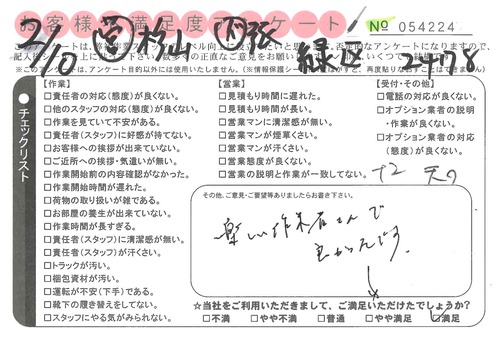 お客様満足度アンケート
No 054224
2/10
緑区
チェックリスト
【作業】
□責任者の対応(態度)が良くない。
□他のスタッフの対応(態度)が良くない。
□作業を見ていて不安がある。
□責任者(スタッフ)に好感が持てない。
□お客様への挨拶が出来ていない。
□ご近所への挨拶・気遣いが無い。
□作業開始前の内容確認がなかった。
□作業開始時間が遅れた。
□荷物の取り扱いが雑である。
□お部屋の養生が出来ていない。
□作業時間が長すぎる。
□責任者(スタッフ)に清潔感が無い。
□責任者(スタッフ)が汗くさい。
□トラックが汚い。
□梱包資材が汚い。
□運転が不安(下手)である。
□靴下の履き替えをしてない。
□スタッフにやる気がみられない。
【営業】
□見積もり時間に遅れた。
□見積もり時間が長い。
□営業マンに清潔感が無い。
□営業マンが煙草くさい。
□営業マンが汗くさい。
□営業態度が良くない。
□営業の説明と作業が一致してない。
【受付・その他】
□電話の対応が良くない。
□オプション業者の説明
・作業が良くない。
□オプション業者の対応
(態度)が良くない。
その他、ご意見・ご要望等ありましたらお書き下さい。
楽しい作業者さんで
良かったです。
☆当社をご利用いただきまして、ご満足いただけたでしょうか?
□不満 □やや不満 □普通 □やや満足 □満足